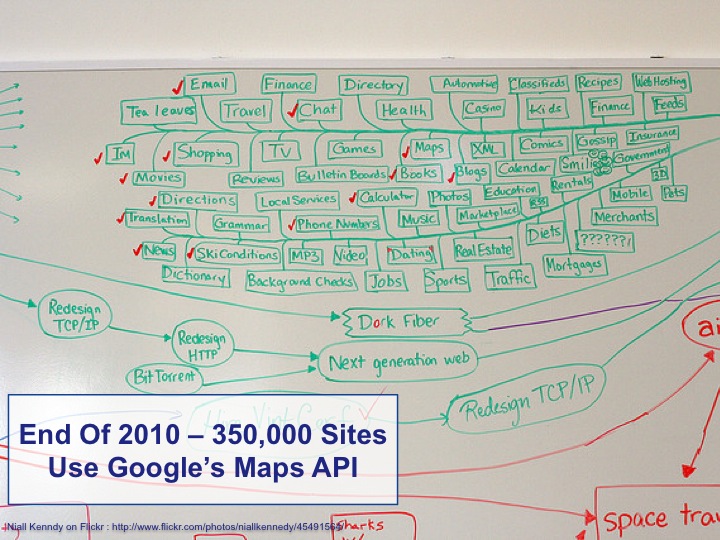 Email Finance Directory Automotive Classifieds Recipes WebHosting
Tea leaves Travel Chat Health Casino Kids Finance Feeds
IM Shopping TV Games Maps XML Comics Gossip Insurance
Movies Reviews Bulletin Boards Books Blogs Calendar Smilies Government
Directions Local Services Calculator Photos Education RSS Rentals 3D
Translation Grammar Phone Numbers Music Marketplace Mobile Pets
Merchants
News Ski Conditions MP3 Video Dating Real Estate Diets ??????/
Dictionary Background Checks Jobs Sports Traffic Mortgages
Redesign
TCP/IP
Dark Fiber
Redesign
HTTP
Next generation web
BitTorrent
Redesign TCP/IP
ai
End Of 2010 – 350,000 Sites
Use Google's Maps API
space trav
Niall Kenndy on Flickr : http://www.flickr.com/photos/niallkennedy/45491565
Sharks